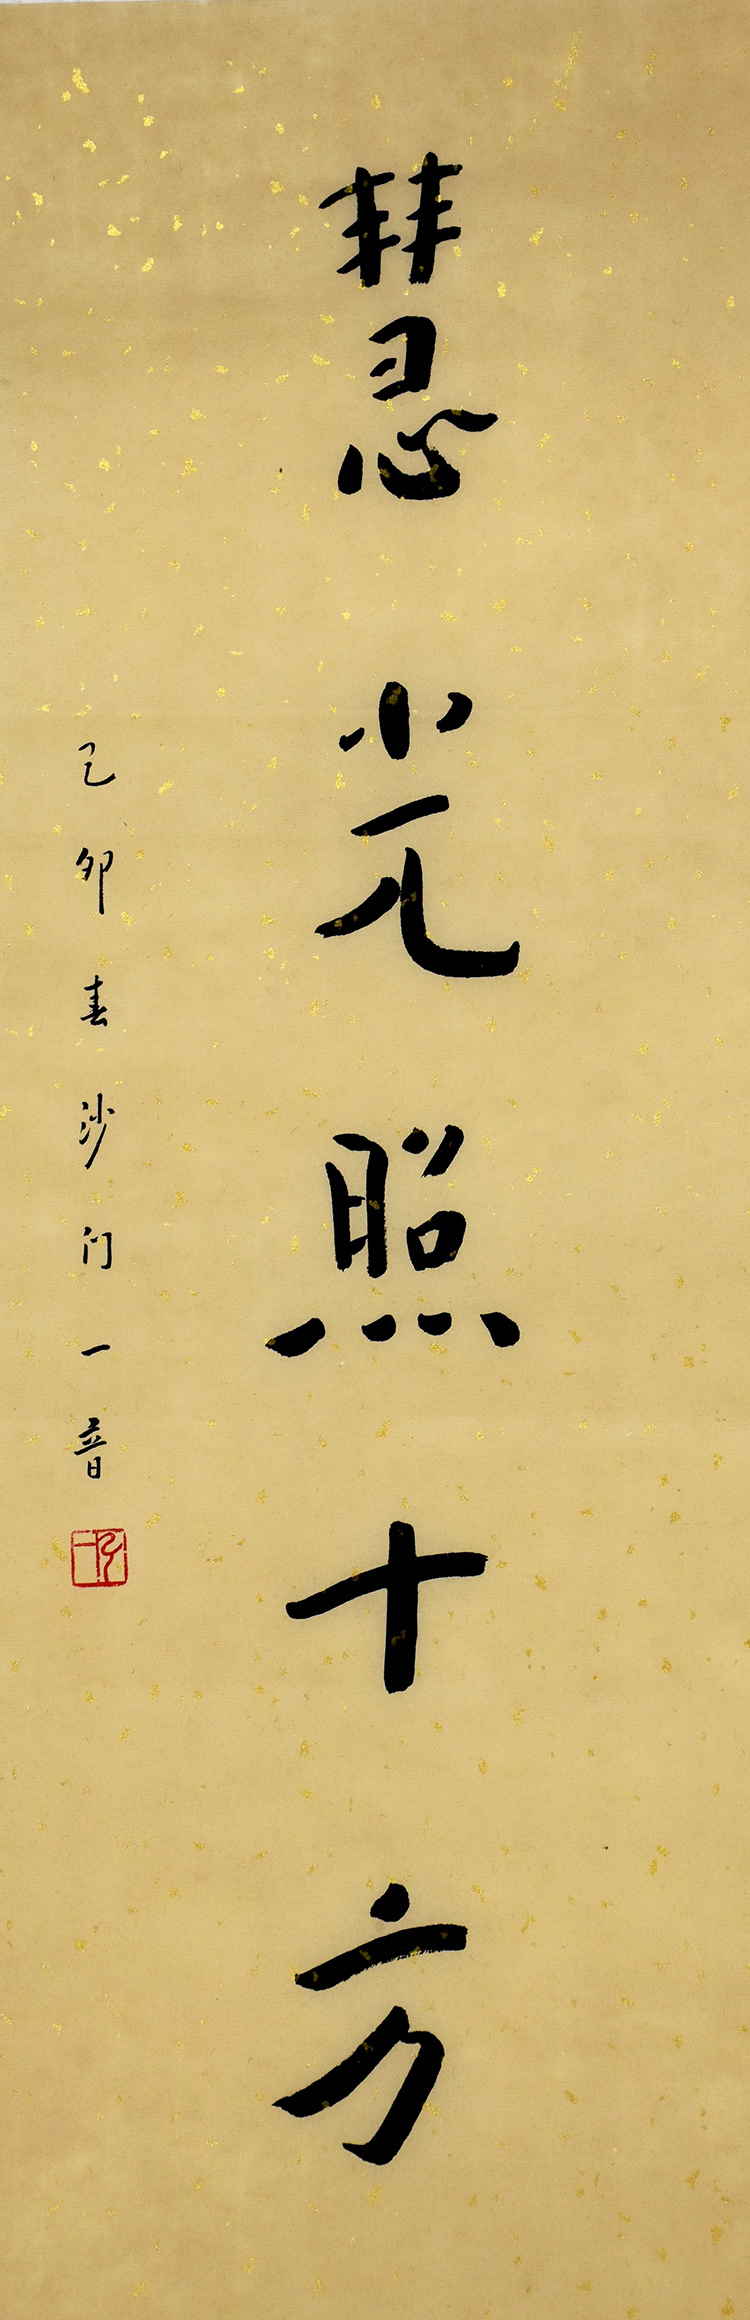 慧光照十方
己卯春沙门一音